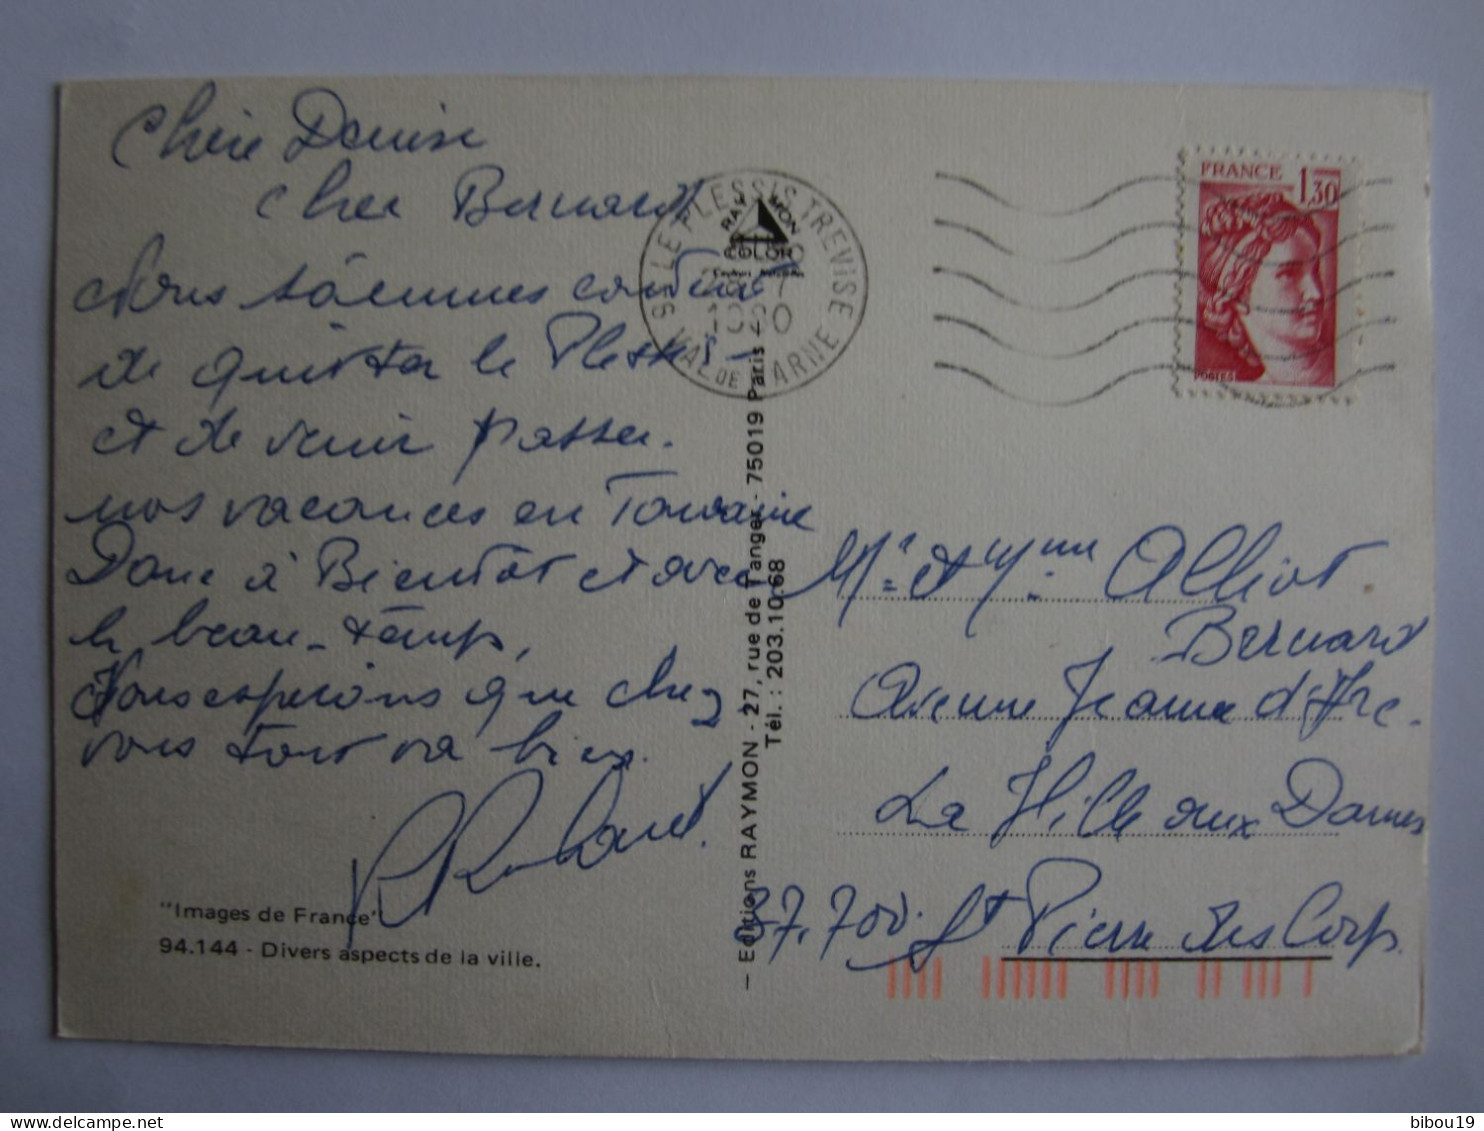 Chère Denise
Cher Bernard
Nous sommes content
de quitter le Plessis
et de venir passer
nos vacances en Touraine
Donc à Bientôt et avec
le beau-temps,
Nous esperons que chez
vous tout va bien.
"Images de France"
94.144 - Divers aspects de la ville.
RAYMON
COLOR
LE PLESSIS TREVISE
94 VAL DE MARNE
— Editions RAYMON - 27, rue de Tanger - 75019 Paris
Tél. : 203.10.68
FRANCE 1,30
POSTES
Mr et Mme Alliot
Bernard
Avenue Jeanne d'Arc.
La Ville aux Dames
37.700 St Pierre des Corps.
bibou19